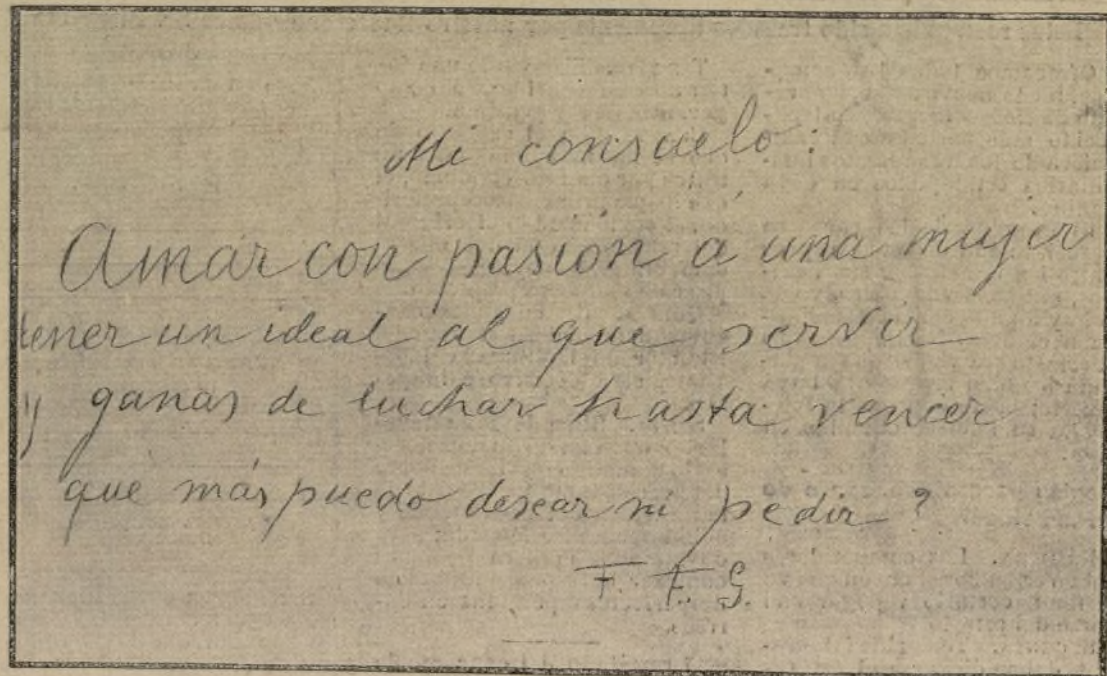 Mi consuelo:
Amar con pasión á una mujer
tener un ideal al que servir
y ganas de luchar hasta vencer
que más puedo desear ni pedir?
F. F. G